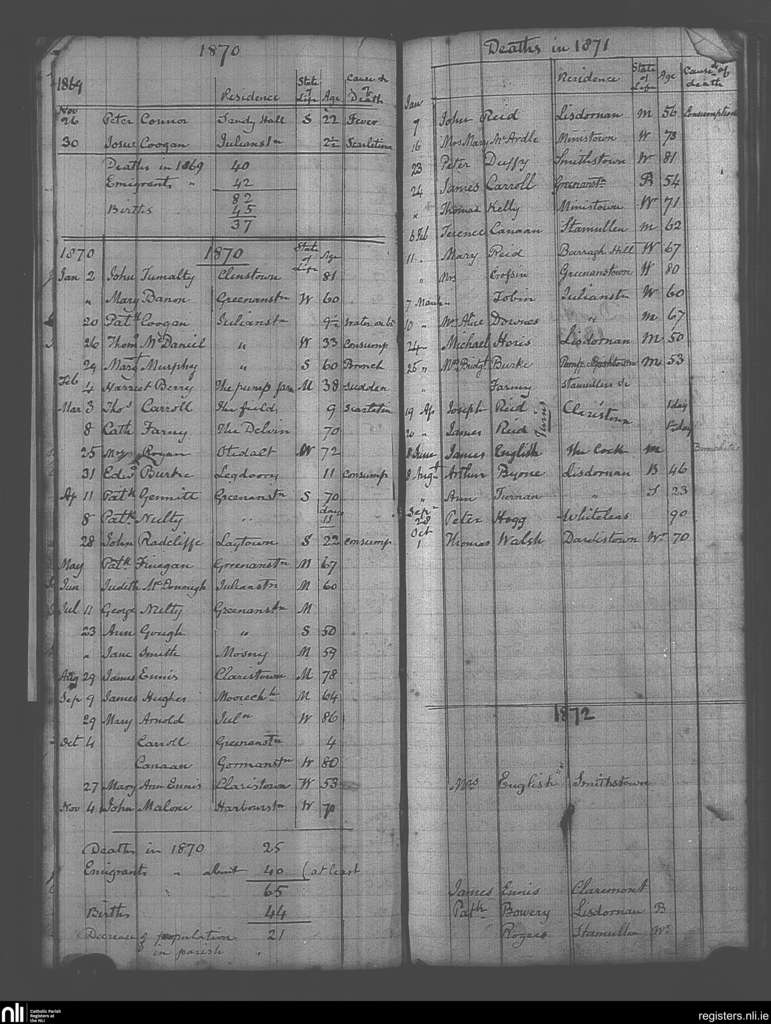 1870
1869 Residence State of Life Age Cause of Death
Nov
26 Peter Connor Sandy Hall S 22 Fever
30 Josue Coogan Julianstn 2½ Scarletina
Deaths in 1869 40
Emigrants " 42
82
Births 45
37
1870 1870 State of Life Age
Jan 2 John Tumalty Clinstown 81
" Mary Banon Greenanstn W 60
20 Patk Coogan Julianstn 9½
26 Thoms McDaniel " W 33 Consump
29 Mary Murphy " S 60 Bronch
Feb
4 Harriet Berry The pump farm M 38 Sudden
Mar 3 Thos Carroll The field 9 Scarletina
8 Cath Farny The Delvin 70
25 Mrs Rogan W 72
31 Edwd Burke 11 Consump
Ap 11 Patk Gennitt Greenanstn S 70
8 Patk Nulty " days 11
28 John Radcliffe Laytown S 22 Consump
May Patk Finegan Greenanstn M 67
Jun Judith McDonough Julianstn M 60
Jul 11 George Nulty Greenanstn M
23 Ann Gough " S 50
" Jane Smith Mosney M 59
Aug 29 James Ennis Claristown M 78
Sep 9 James Hughes Moorechh M 64
29 Mary Arnold Juln W 86
Oct 4 Carroll Greenanstn 4
Canaan Gormanstn W 80
27 Mary Ann Ennis Claristown W 53
Nov 4 John Malone Harbourstn W 70
Deaths in 1870 25
Emigrants " about 40 (at least
65
Births 44
Decrease of population 21
in parish "
Deaths in 1871
Residence State of Life Age Cause of death
Jan
9 John Reid Lisdornan M 56 Consumption
16 Mrs Mary McArdle Ministown W 73
23 Peter Duffy Smithstown W 81
24 James Carroll Greenanstn B 54
" Thomas Kelly Ministown W 71
6 Feb Terence Canaan Stamullen M 62
11 Mary Reid Barragh Hill W 67
" Mrs Greenanstown W 80
7 March Tobin Julianstn W 60
10 " Mrs Alice Downes " M 67
24 Michael Heris Lisdornan M 50
25 " Mrs Bridgt Burke M 53
" Farmy Stamullen
19 Ap Joseph Reid Claristown 1 day
20 " James Reid Twins
8 June James English The Cock M Bronchitis
8 Augt Arthur Byrne Lisdornan B 46
" Ann Tiernan " S 23
Sep
28 Peter Hogg Whiteleas 90
Oct
1 Thomas Walsh Dardistown Wr 70
1872
Mrs English Smithstown
James Ennis Claremont
Patk Bowery Lisdornan B
Rogers Stamullen Wr
nli Catholic Parish Registers at the NLI
registers.nli.ie